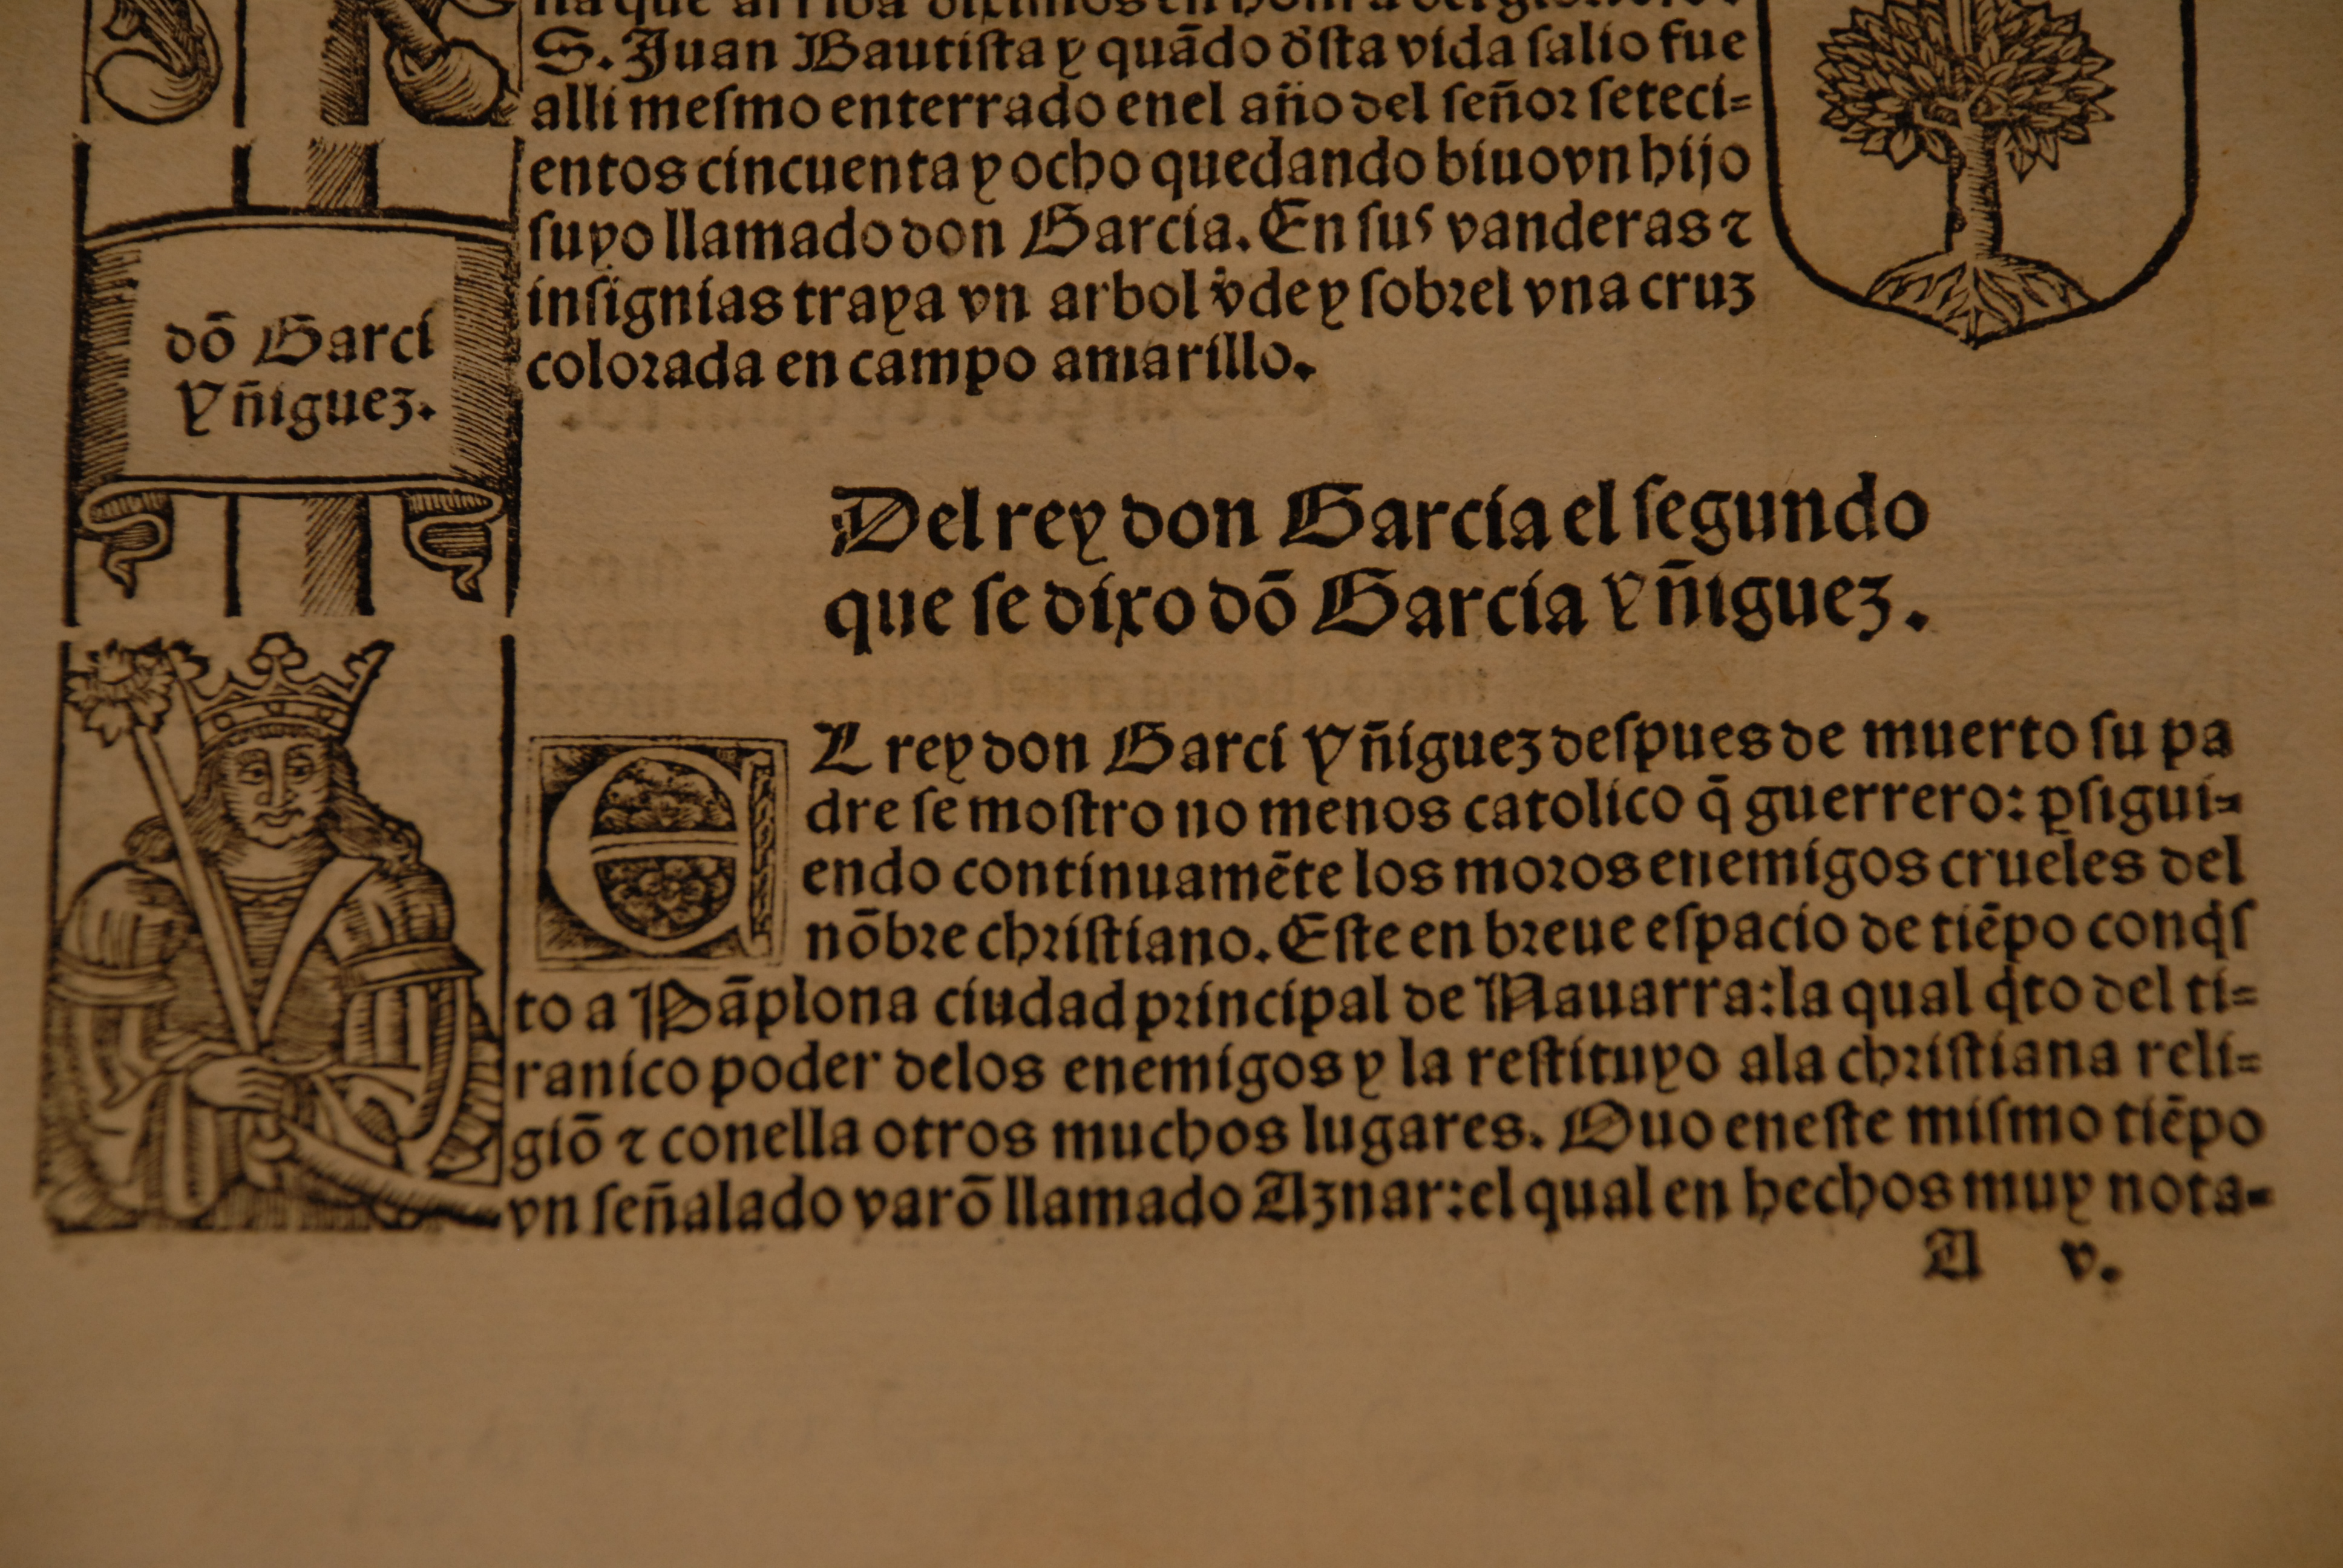 na que arriba diximos en honra del glorioso
S. Juan Bautista y quādo d̄sta vida salio fue
alli mesmo enterrado enel año del señor seteci=
entos cincuenta y ocho quedando biuo vn hijo
suyo llamado don Garcia. En sus vanderas ⁊
insignias traya vn arbol v̄de y sobrel vna cruz
colorada en campo amarillo.
dō Garci
Yñiguez.
Del rey don Garcia el segundo
que se dixo dō Garcia Yñiguez.
EL rey don Garci Yñiguez despues de muerto su pa
dre se mostro no menos catolico q̄ guerrero: ꝑsigui=
endo continuamēte los moros enemigos crueles del
nōbre christiano. Este en breue espacio de tiēpo conq̇s
to a Pāplona ciudad principal de Nauarra: la qual q̇to del ti=
ranico poder delos enemigos y la restituyo ala christiana reli=
giō ⁊ conella otros muchos lugares. Ouo eneste mismo tiēpo
vn señalado varō llamado Aznar: el qual en hechos muy nota=
A v.